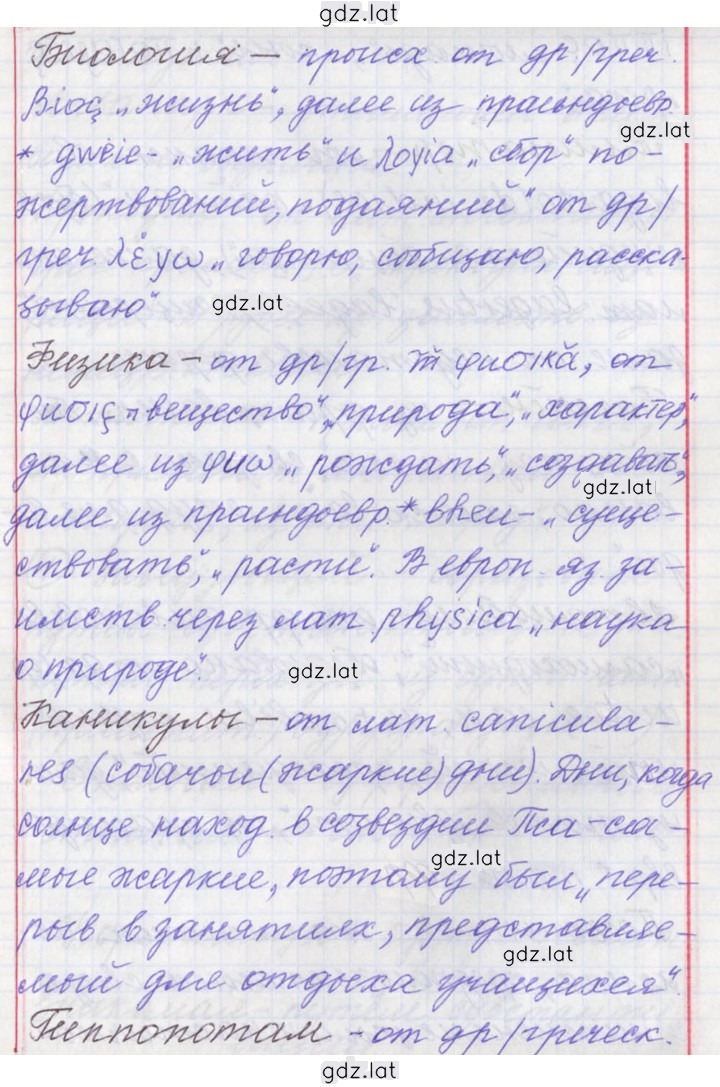 gdz.lat
Биология – происх. от др/греч.
βιος „жизнь“, далее из праиндоевр.
gdz.lat
* gwеie- „жить“ и λογια „сбор“ по-
жертвований, подаяний“ от др/
греч. λέγω „говорю, сообщаю, расска-
зываю“
gdz.lat
Физика – от др/гр. от
„вещество“, „природа“, „характер“,
далее из „рождать“, „создавать“,
gdz.lat
далее из праиндоевр. * bheu- „суще-
ствовать“, „расти“. В европ. яз. за-
имств. через лат. physica „наука
о природе“.
gdz.lat
Каникулы – от лат. canicula-
res (собачьи (жаркие) дни). Дни, когда
солнце наход. в созвездии Пса – са-
gdz.lat
мые жаркие, поэтому был „пере-
рыв в занятиях, представляе-
gdz.lat
мый для отдыха учащихся“.
Гиппопотам – от др/греческ.
gdz.lat